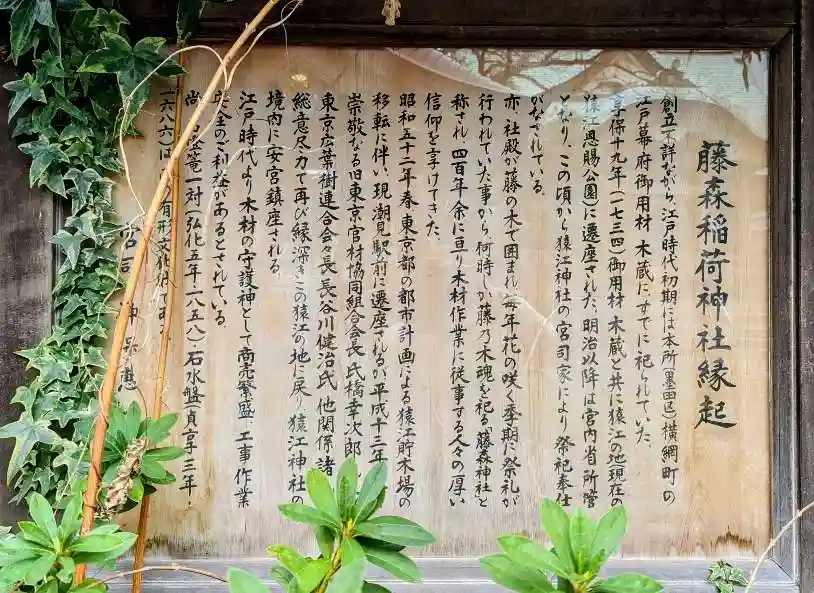 藤森稲荷神社縁起
創立不詳ながら、江戸時代初期には本所(墨田区)横網町の
江戸幕府御用材 木蔵にすでに祀られていた。
享保十九年(一七三四)御用材 木蔵と共に猿江の地(現在の
猿江恩賜公園)に遷座された。明治以降は宮内省所管
となり、この頃から猿江神社の宮司家により祭祀奉仕
がなされている。
亦、社殿が藤の木で囲まれ、毎年花の咲く季期に祭礼が
行われていた事から何時しか藤乃木魂を祀る「藤森神社と
称され、四百年余に亘り木材作業に従事する人々の厚い
信仰を享けてきた。
昭和五十二年春、東京都の都市計画による猿江貯木場の
移転に伴い、現潮見駅前に遷座されるが平成十三年
崇敬なる旧東京官材協同組合会長 氏橋幸次郎
東京広葉樹連合会々長 長谷川健治氏 他関係諸
総意尽力で再び縁深きこの猿江の地に戻り猿江神社の
境内に安宮鎮座される。
江戸時代より木材の守護神として商売繁盛、工事作業
安全のご利益があるとされている。
尚 篭一対(弘化五年一八五八)石水盤(貞享三年・
一六八六)は 有形文化 である
宮司 神保